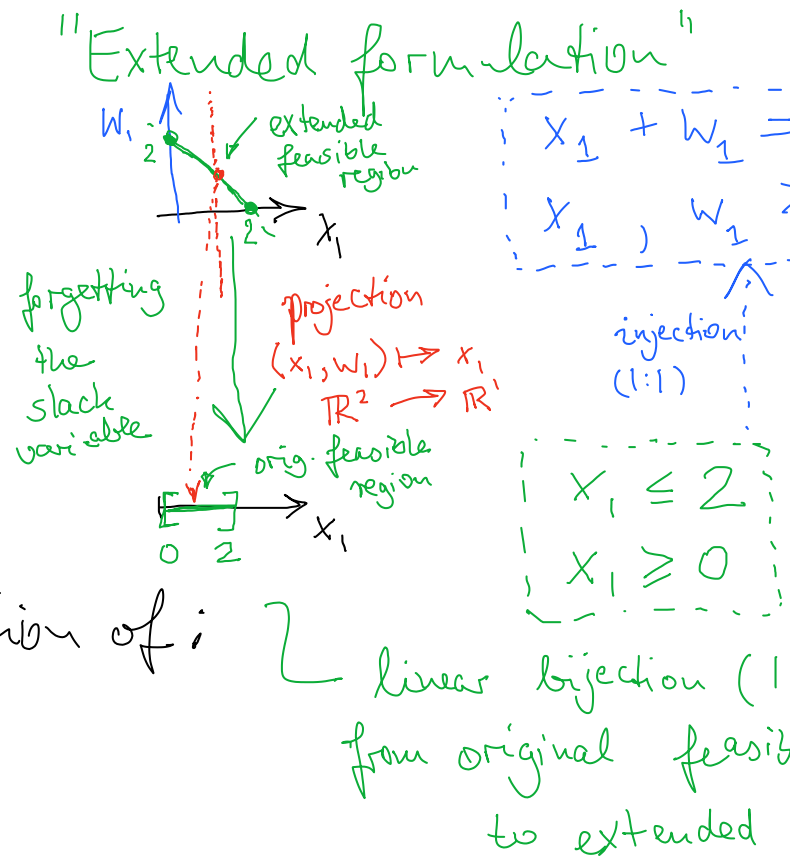 "Extended formulation"
W₁
2
extended
feasible
region
2
x₁
x₁ + w₁ =
x₁ , w₁
forgetting
the
slack
variable
projection
(x₁, w₁) ↦ x₁
ℝ² → ℝ¹
injection
(1:1)
orig. feasible
region
[ ]
0 2
x₁
x₁ ≤ 2
x₁ ≥ 0
of i
linear bijection (1
from original feasib
to extended